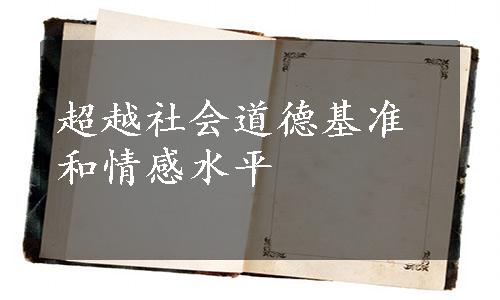 超越社会道德基准
和情感水平